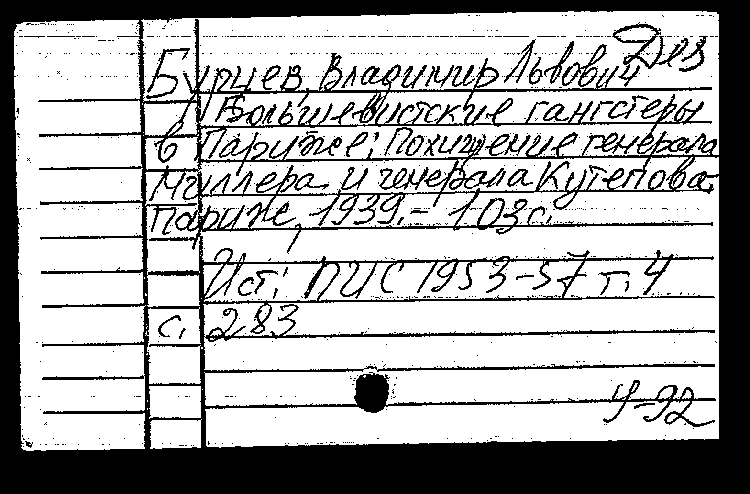 Дез
Бурцев, Владимир Львович
Большевистские гангстеры
в Париже: Похищение генерала
Миллера и генерала Кутепова.
Париж, 1939.- 103с.
Ист: ПИС 1953-57 т. 4
с. 283
У-92